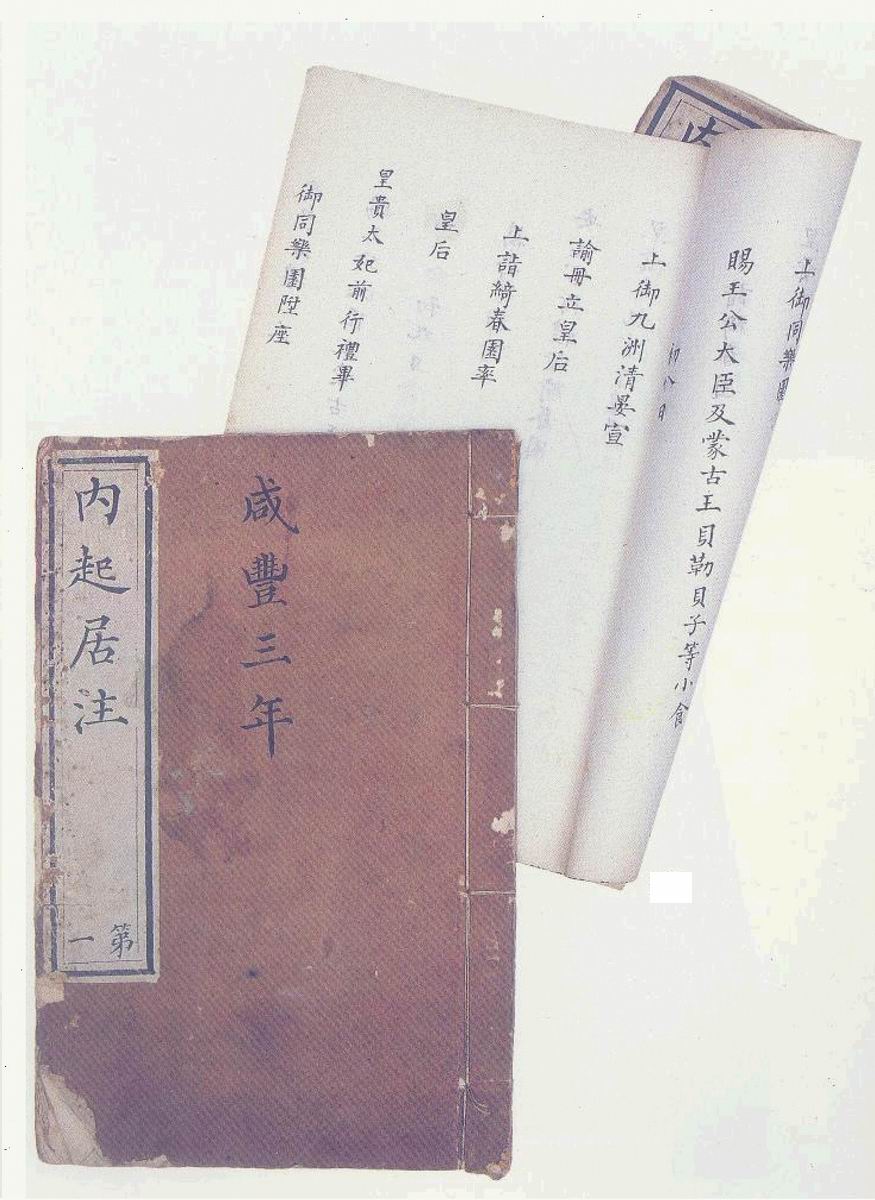 咸豐三年
内起居注
第一
内
上御同樂園
賜王公大臣及蒙古王貝勒貝子等小食
初八日
上御九洲清晏宣
諭冊立皇后
上詣綺春園率
皇后
皇貴太妃前行禮畢
御同樂園陞座